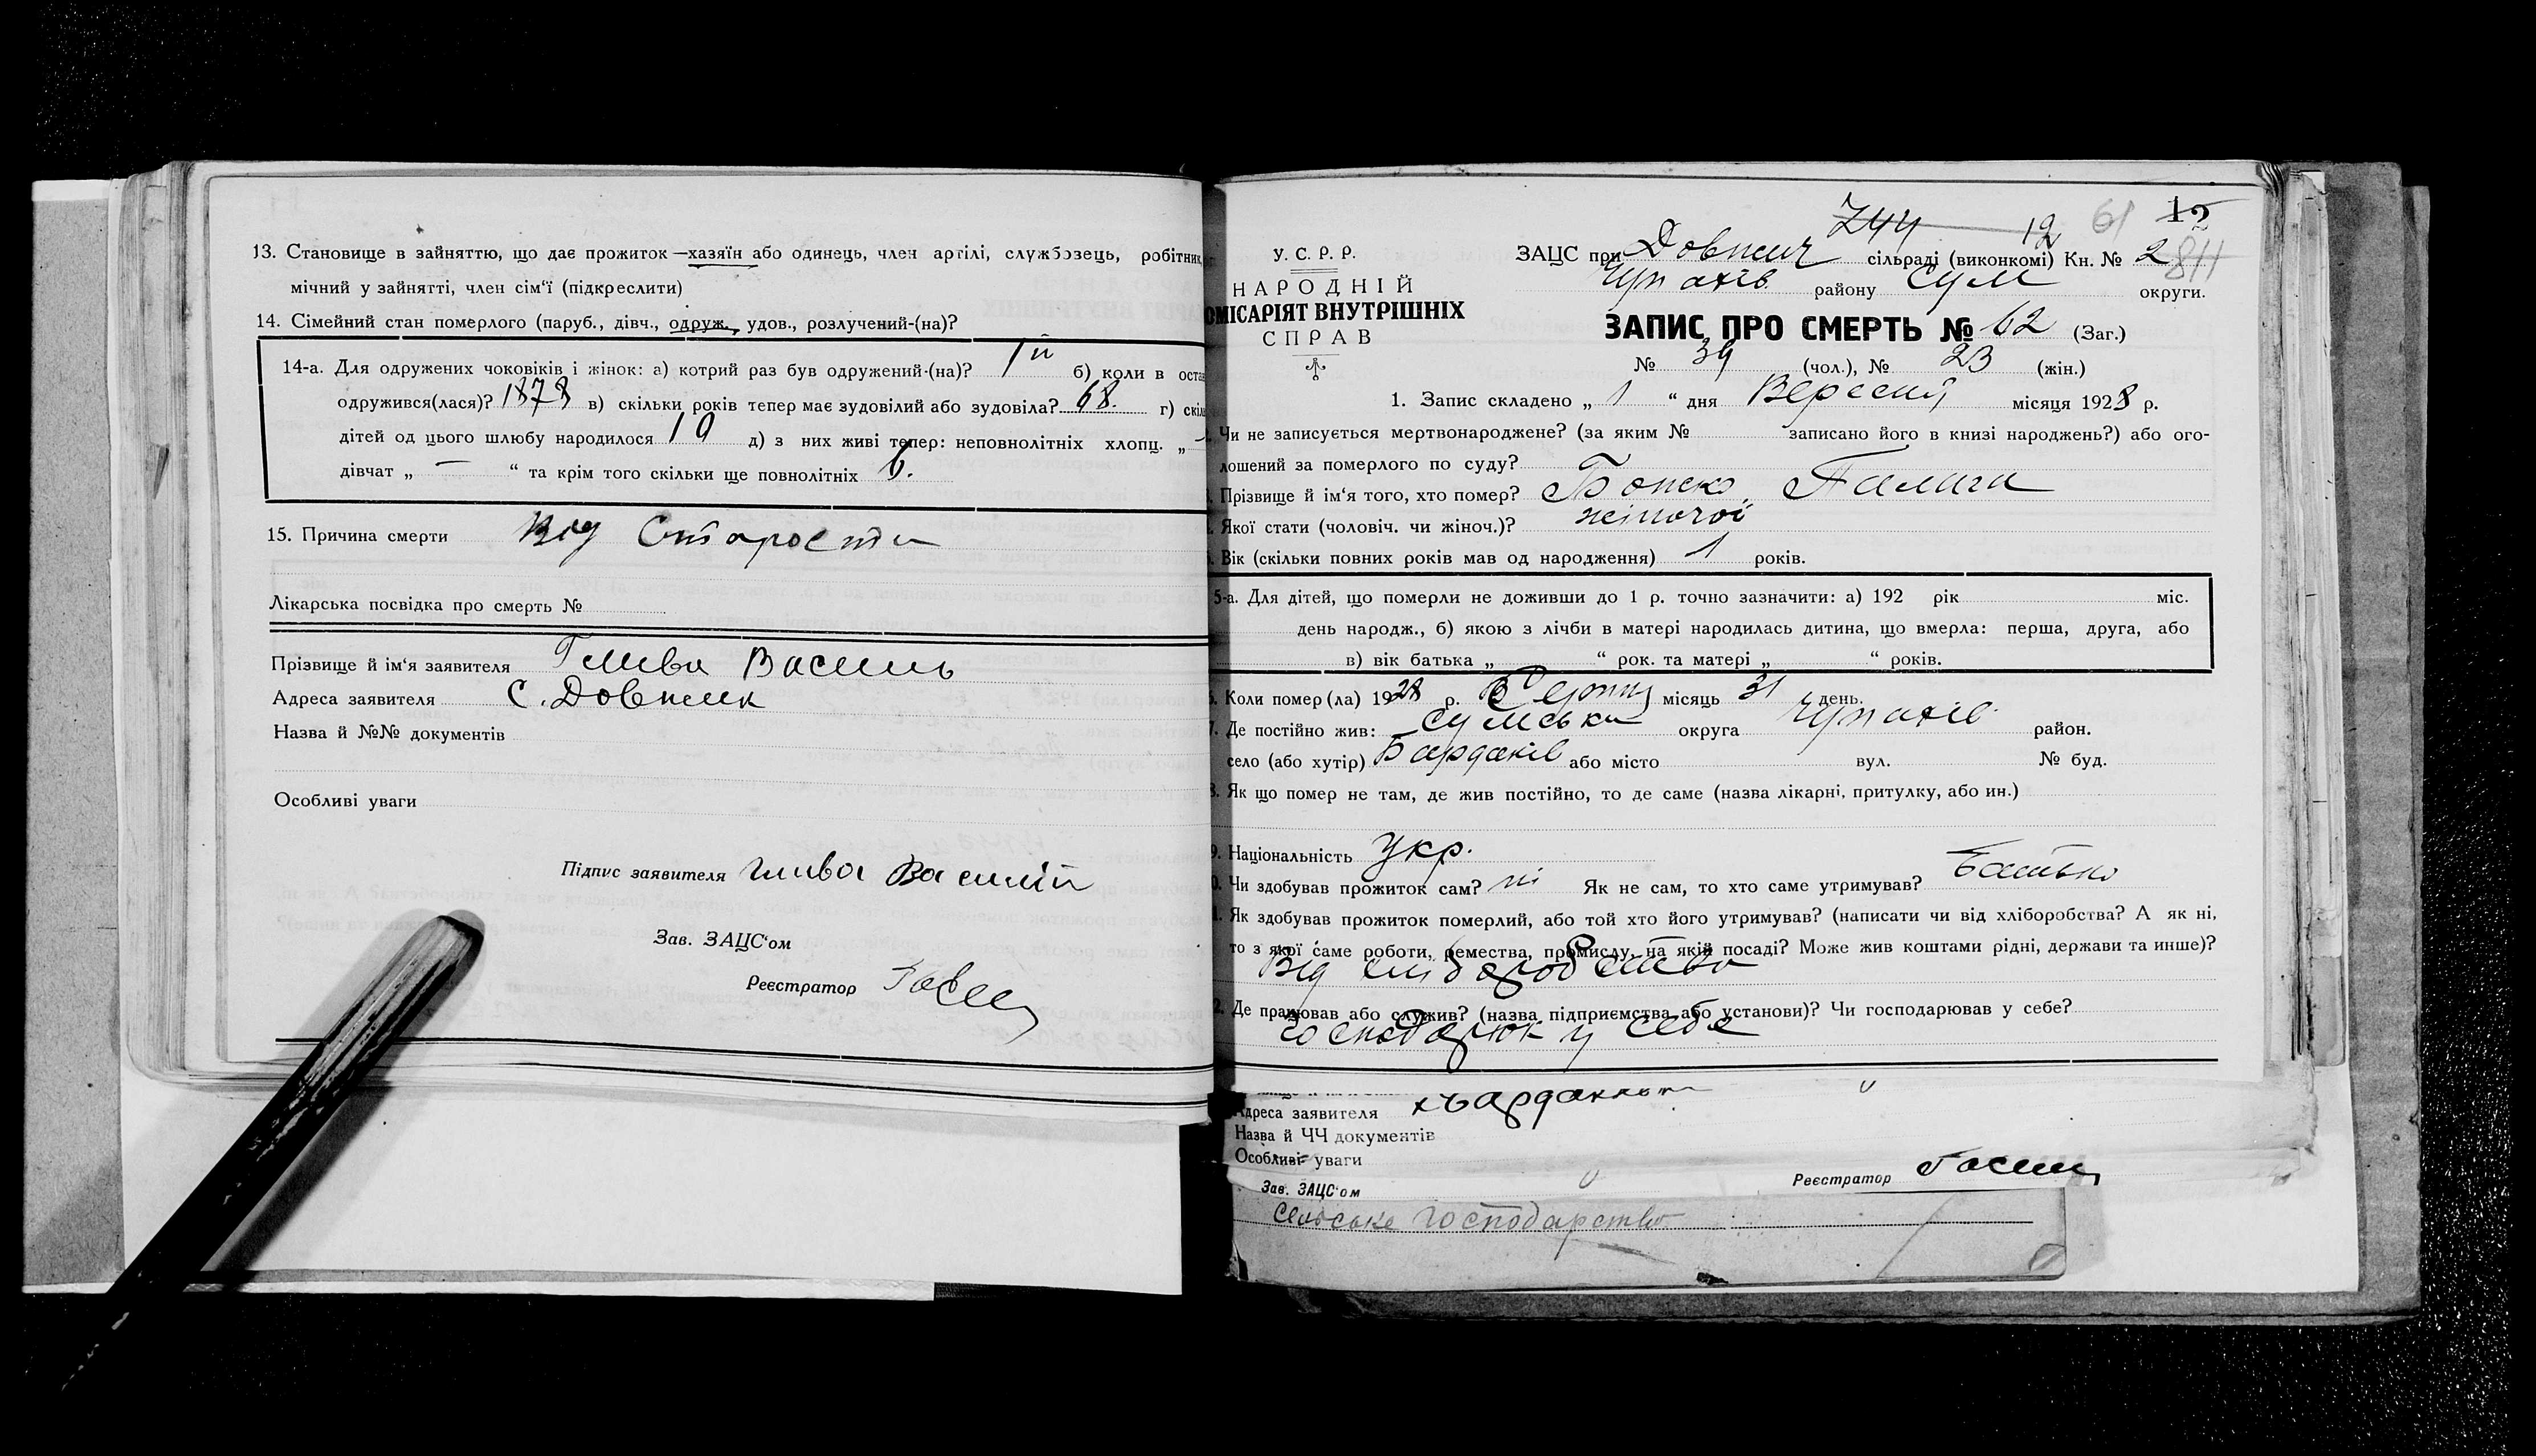 13. Становище в зайняттю, що дає прожиток — хазяїн або одинець, член артілі, службовець, робітник,
мічний у зайнятті, член сім'ї (підкреслити)
14. Сімейний стан померлого (паруб., дівч., одруж., удов., розлучений-(на)?
14-а. Для одружених чоковіків і жінок: а) котрий раз був одружений-(на)? 1й б) коли в оста
одружився(лася)? 1878 в) скільки років тепер має зудовілий або зудовіла? 68. г) скіл
дітей од цього шлюбу народилося 10 д) з них живі тепер: неповнолітніх хлопц. „ —
дівчат „ — “ та крім того скільки ще повнолітніх 6.
15. Причина смерти Від Старости
Лікарська посвідка про смерть №
Прізвище й ім'я заявителя Глива Василь
Адреса заявителя С. Довжик
Назва й №№ документів
Особливі уваги
Підпис заявителя Глива Василій
Зав. ЗАЦС'ом
Реєстратор
744 12 61 12
У. С. Р. Р.
НАРОДНІЙ
ОМІСАРІЯТ ВНУТРІШНІХ
СПРАВ
ЗАЦС при Довжич сільраді (виконкомі) Кн. № 2 811
Чупахів району Сум округи.
ЗАПИС ПРО СМЕРТЬ № 62 (Заг.)
№ 39 (чол.), № 23 (жін.)
1. Запис складено „ 1 “ дня Вересня місяця 1928 р.
Чи не записується мертвонароджене? (за яким № записано його в книзі народжень?) або ого-
лошений за померлого по суду?
Прізвище й ім'я того, хто помер?
Якої стати (чоловіч. чи жіноч.)? жіночої
Вік (скільки повних років мав од народження) 1 років.
5-а. Для дітей, що померли не доживши до 1 р. точно зазначити: а) 192 рік міс.
день народж., б) якою з лічби в матері народилась дитина, що вмерла: перша, друга, або
в) вік батька „ “ рок. та матері „ “ років.
Коли помер (ла) 1928 р. Серпня місяць 31 день.
Де постійно жив: Сумська округа Чупахів район.
село (або хутір) Бардаків або місто вул. № буд.
Як що помер не там, де жив постійно, то де саме (назва лікарні, притулку, або ин.)
9. Національність Укр.
Чи здобував прожиток сам? ні Як не сам, то хто саме утримував? Батько
Як здобував прожиток померлий, або той хто його утримував? (написати чи від хліборобства? А як ні,
то з якої саме роботи, ремества, промислу, на якій посаді? Може жив коштами рідні, держави та инше)?
Від хліборобства
Де працював або служив? (назва підприємства або установи)? Чи господарював у себе?
Господарюк у себе
Адреса заявителя
Назва й ЧЧ документів
Особливі уваги
Зав. ЗАЦС'ом Реєстратор
Сельське господарство